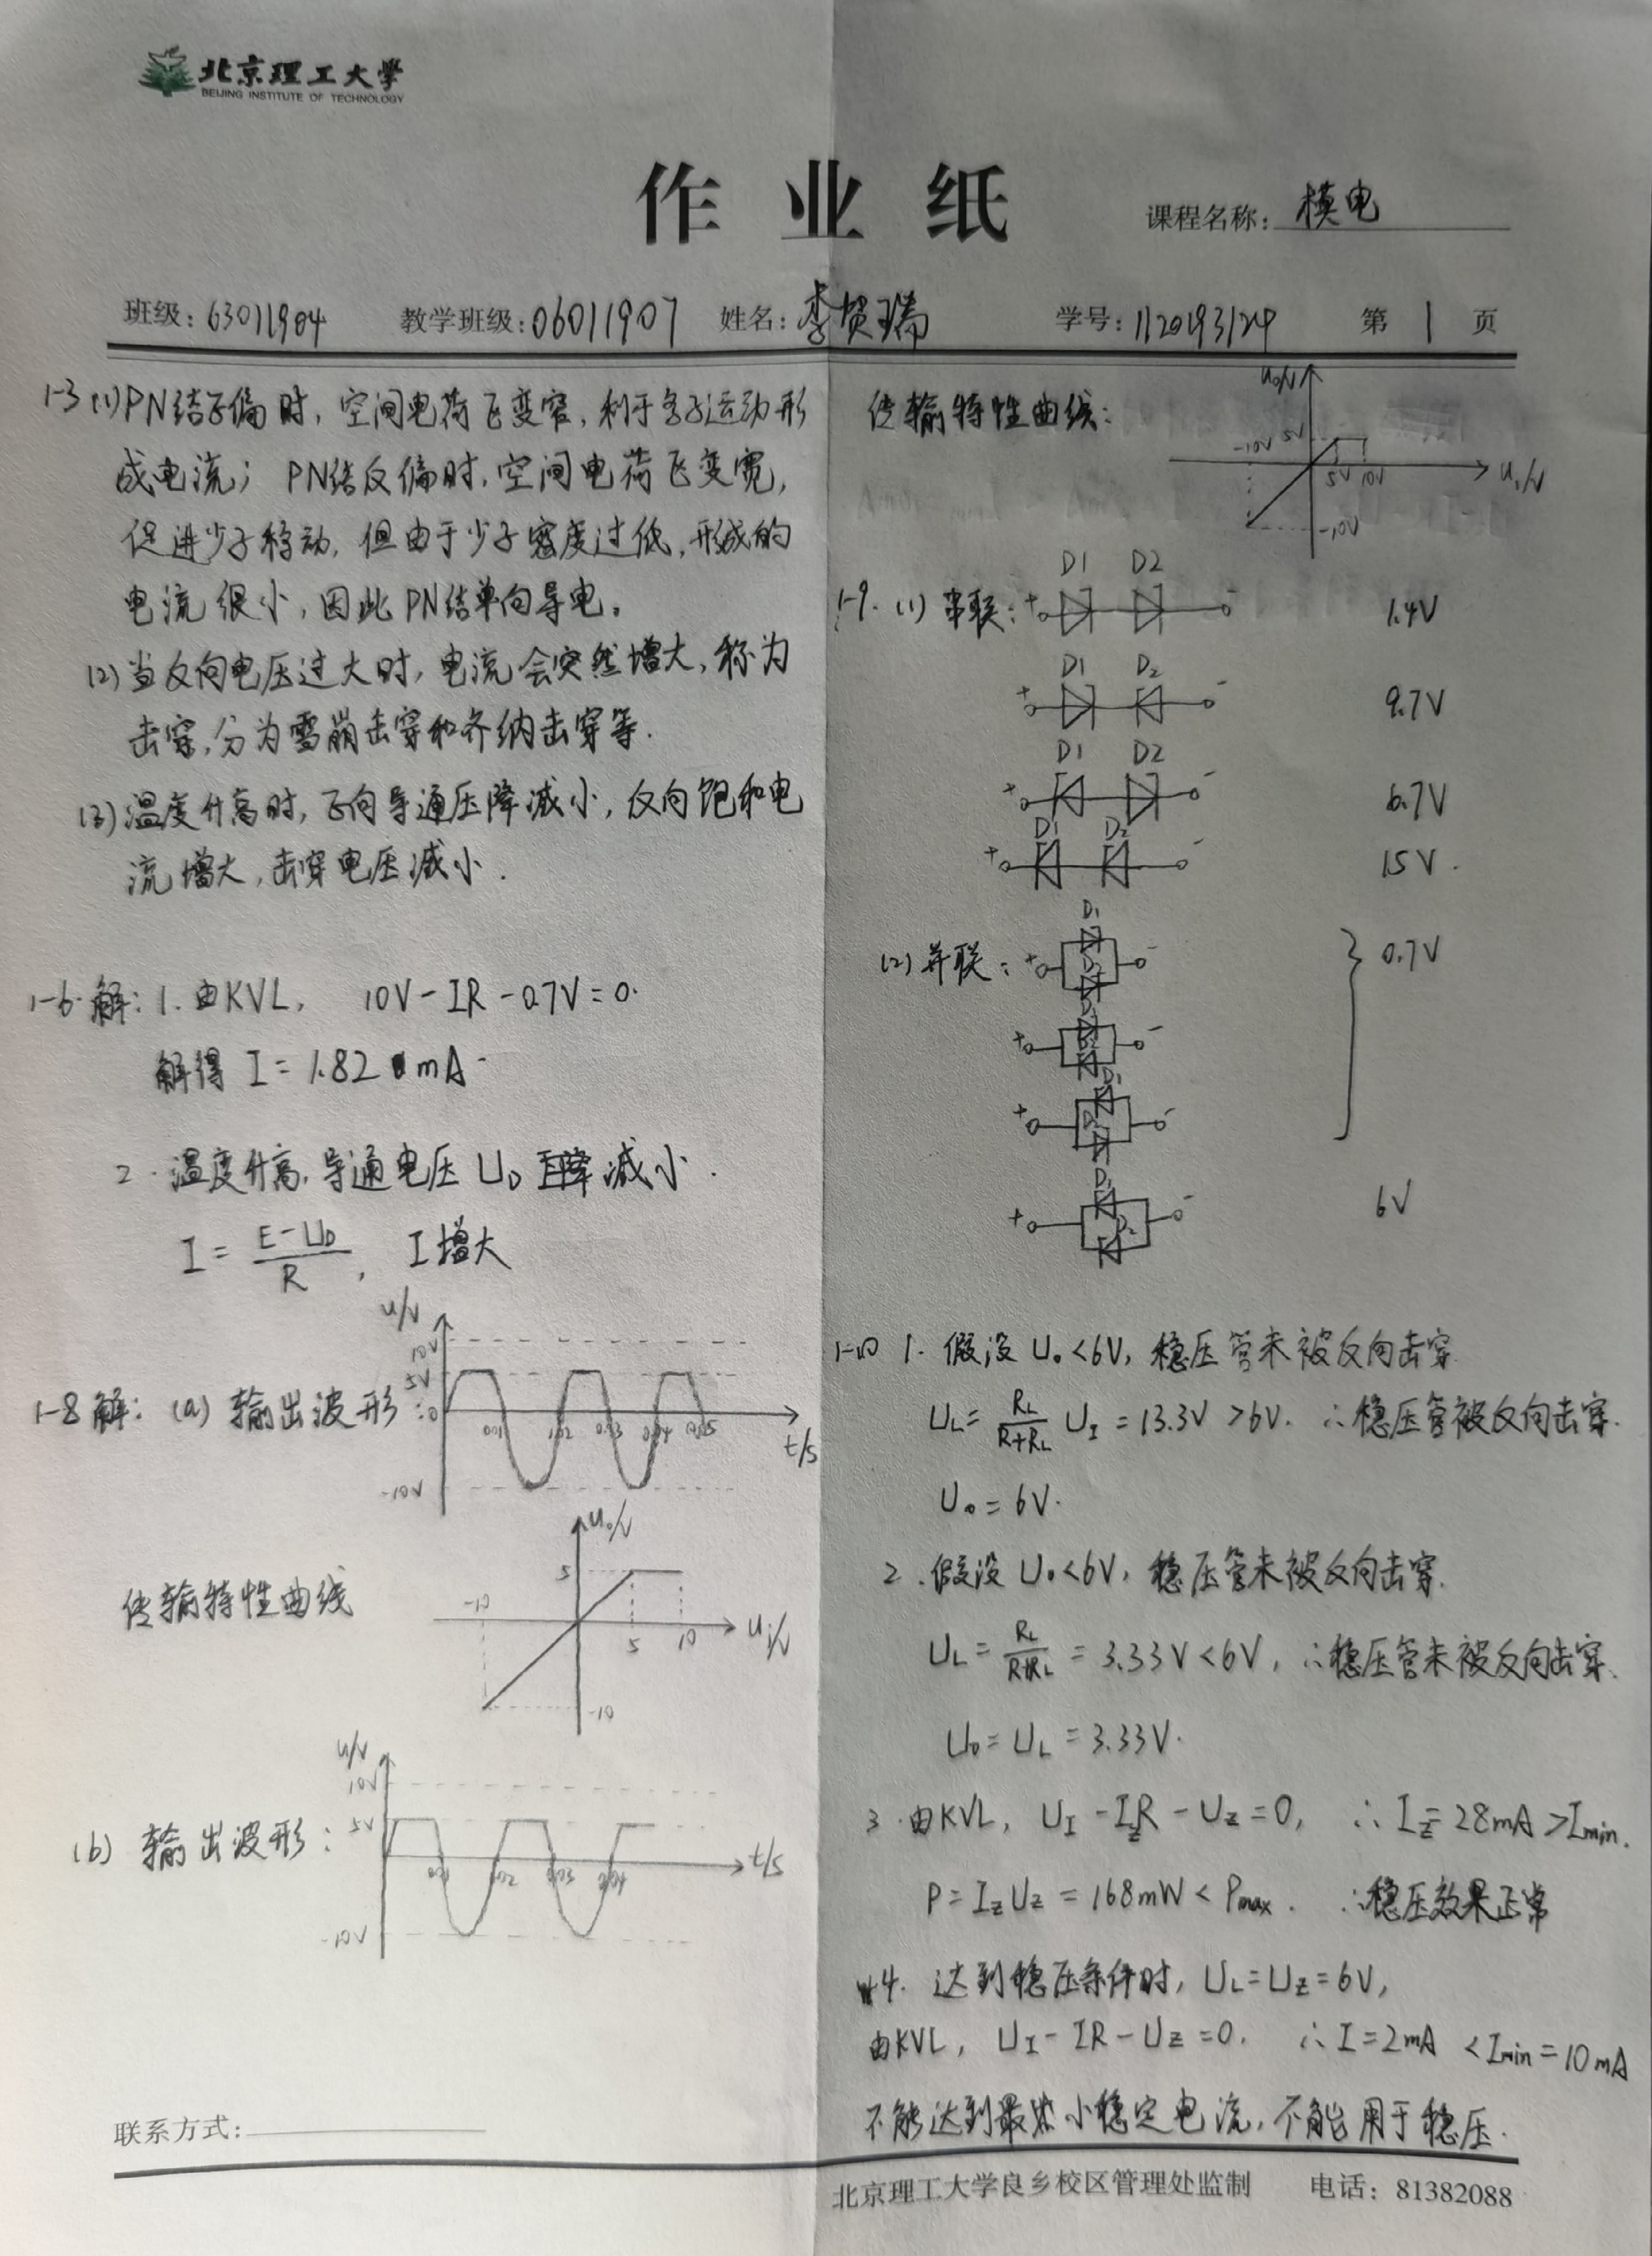 北京理工大学
BEIJING INSTITUTE OF TECHNOLOGY
作业纸
课程名称: 模电
班级: 63011904 教学班级: 06011907 姓名: 李贺瑞 学号: 1120193124 第 1 页
1-3 (1) PN结正偏时, 空间电荷区变窄, 利于多子运动形
成电流; PN结反偏时, 空间电荷区变宽,
促进少子移动, 但由于少子密度过低, 形成的
电流很小, 因此PN结单向导电。
(2) 当反向电压过大时, 电流会突然增大, 称为
击穿, 分为雪崩击穿和齐纳击穿等.
(3) 温度升高时, 正向导通压降减小, 反向饱和电
流增大, 击穿电压减小.
1-6. 解: 1. 由KVL, 10V-IR-0.7V=0.
解得 I=1.82 mA.
2. 温度升高, 导通电压 U_D 减小.
I = (E-U_D)/R, I增大
1-8 解: (a) 输出波形:
u/V
10V
5V
0
-10V
0.01 0.02 0.03 0.04 0.05
t/s
传输特性曲线
u_o/V
5
-10
5 10
u_i/V
-10
(b) 输出波形:
u/V
10V
5V
-10V
0.01 0.02 0.03 0.04
t/s
联系方式:
传输特性曲线:
u_o/V
-10V 5V
5V 10V
u_i/V
-10V
1-9. (1) 串联: + D1 D2 - 1.4V
+ D1 D2 - 9.7V
+ D1 D2 - 6.7V
+ D1 D2 - 15V.
(2) 并联: + D1 D2 - } 0.7V
+ D1 D2 -
+ D1 D2 -
+ D1 D2 - 6V
1-10 1. 假设 U_o<6V, 稳压管未被反向击穿.
U_L = R_L/(R+R_L) U_I = 13.3V >6V. ∴稳压管被反向击穿.
U_o=6V.
2. 假设 U_o<6V, 稳压管未被反向击穿.
U_L = R_L/(R+R_L) = 3.33V<6V, ∴稳压管未被反向击穿.
U_o=U_L=3.33V.
3. 由KVL, U_I-I_zR-U_z=0, ∴ I_z=28mA>I_min.
P=I_zU_z=168mW<P_max. ∴稳压效果正常
4. 达到稳压条件时, U_L=U_z=6V,
由KVL, U_I-IR-U_z=0. ∴ I=2mA <I_min=10mA
不能达到最小稳定电流, 不能用于稳压.
北京理工大学良乡校区管理处监制 电话: 81382088